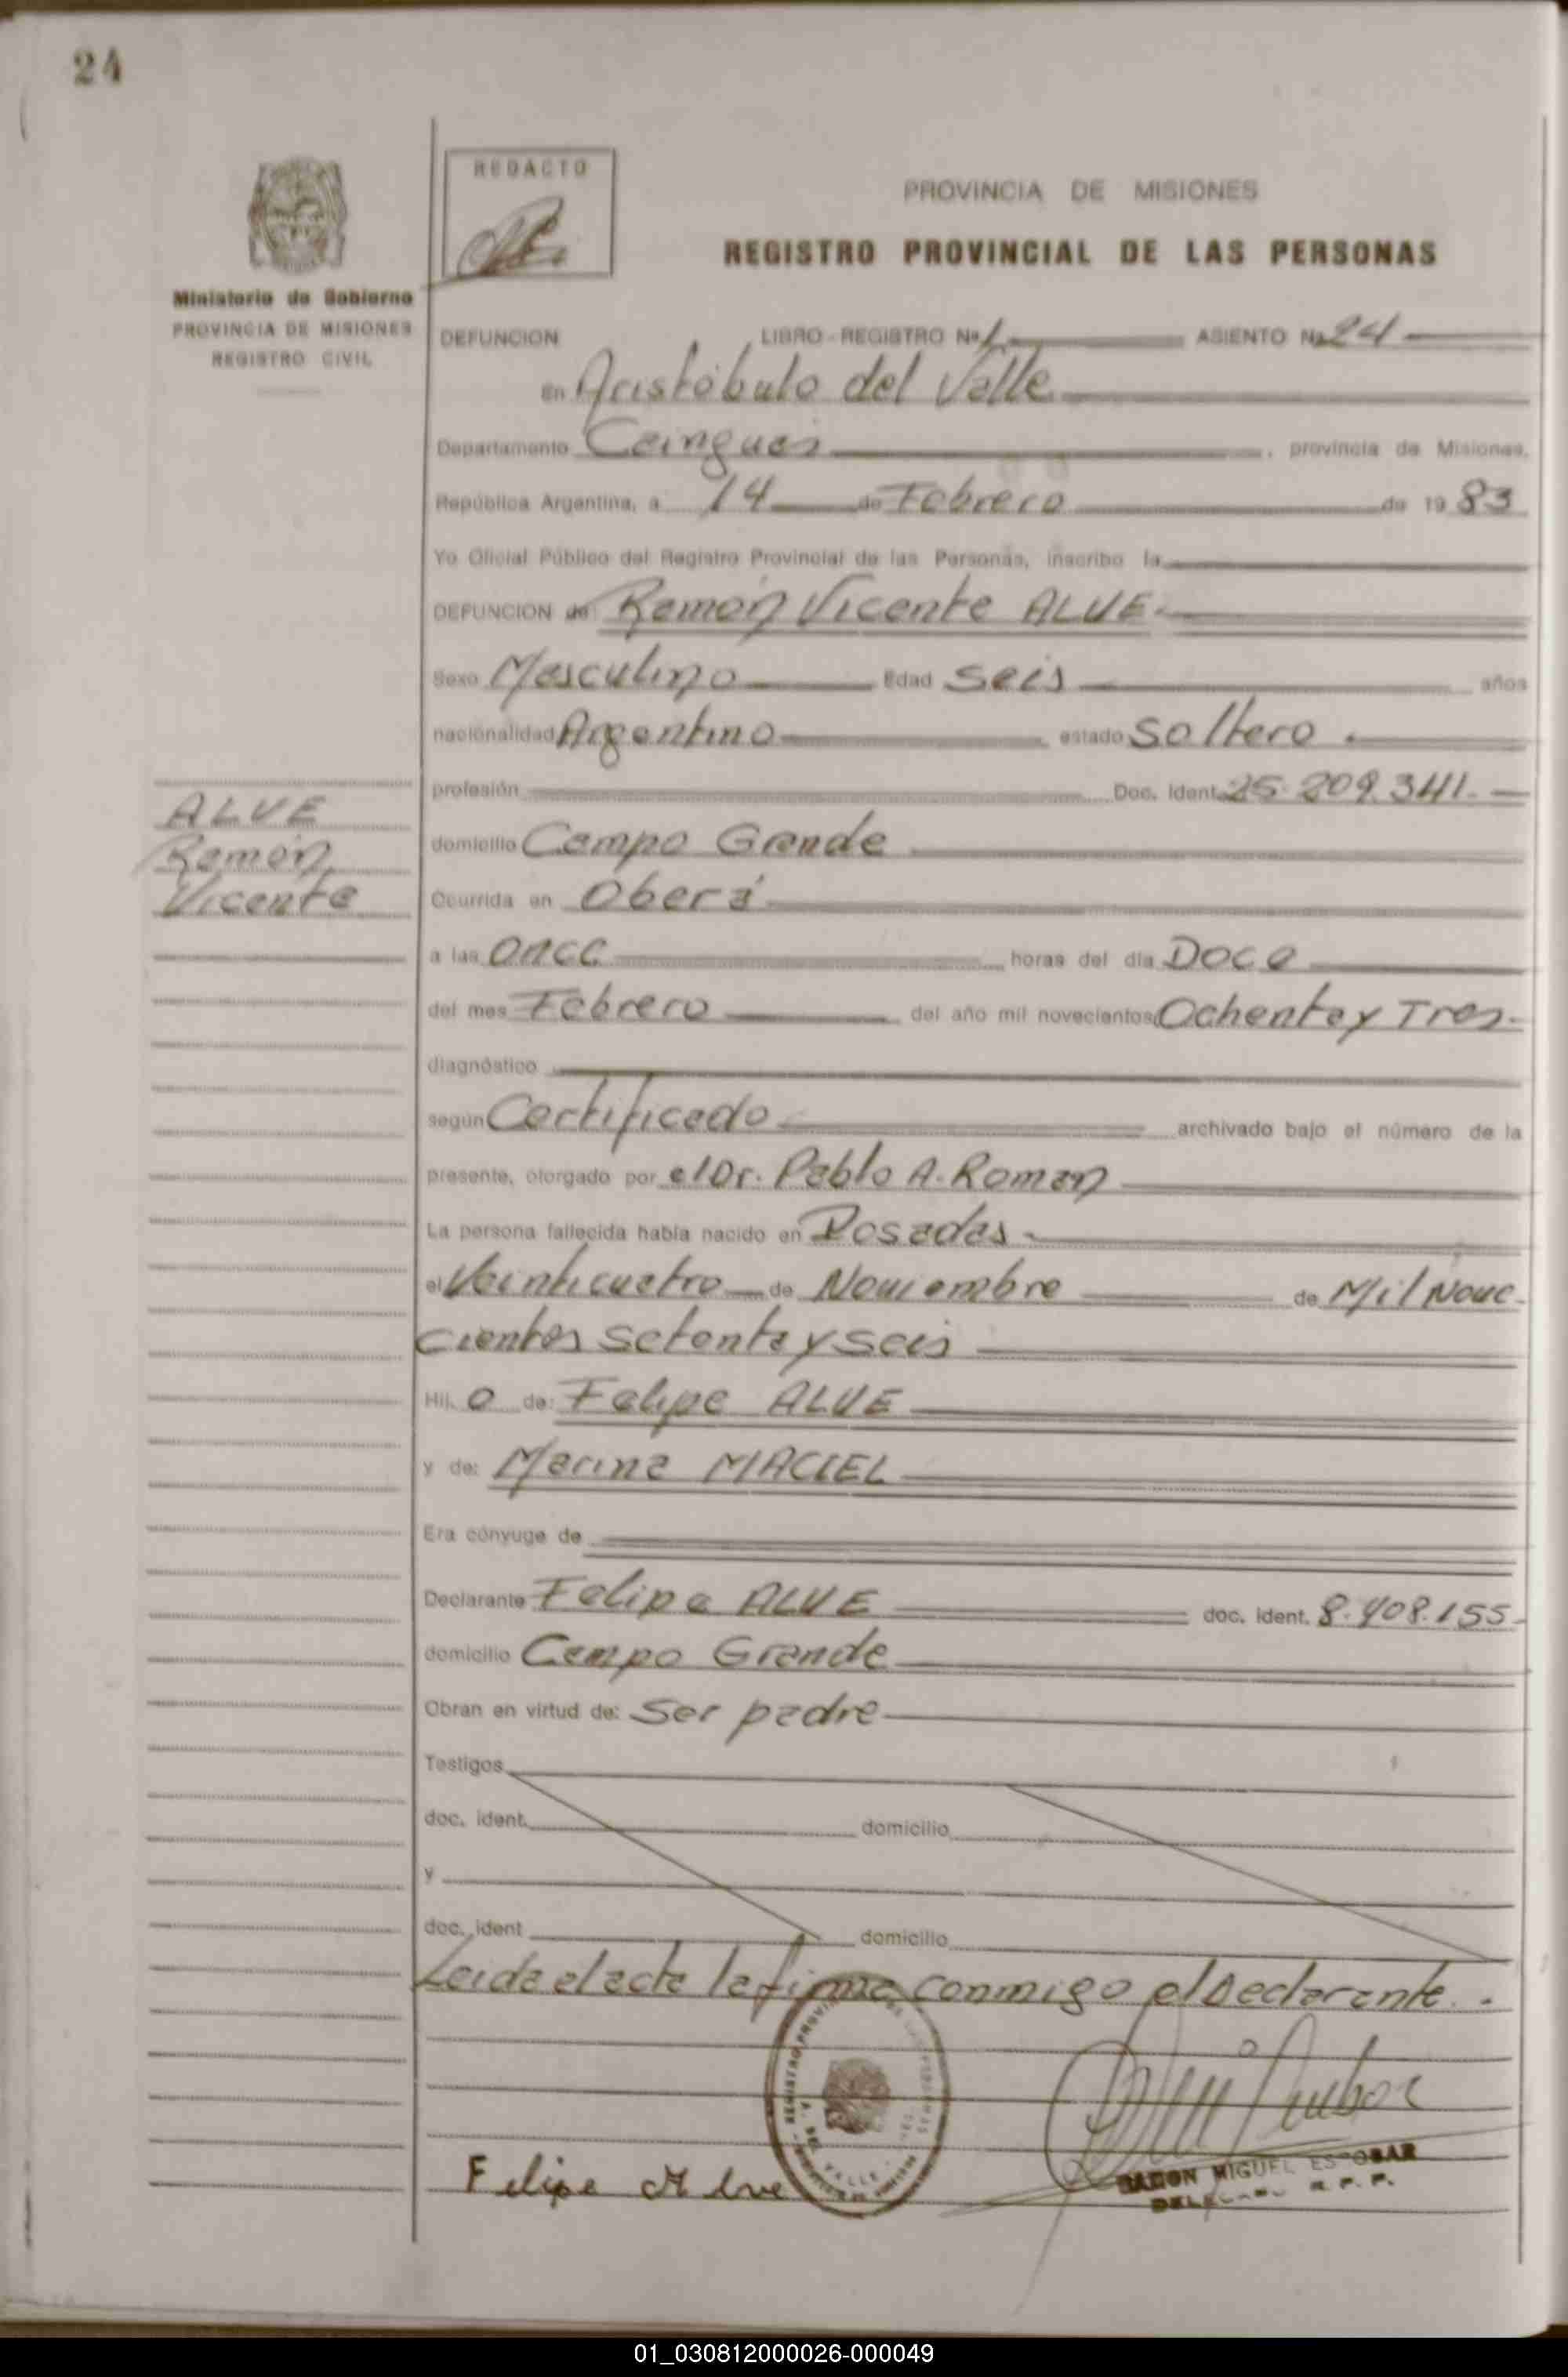 24
REDACTO
PROVINCIA DE MISIONES
REGISTRO PROVINCIAL DE LAS PERSONAS
Ministerio de Gobierno
PROVINCIA DE MISIONES
REGISTRO CIVIL
DEFUNCION LIBRO-REGISTRO Nº 1 ASIENTO Nº 24
En Aristóbulo del Valle
Departamento Cainguas, provincia de Misiones,
República Argentina, a 14 de Febrero de 1983
Yo Oficial Público del Registro Provincial de las Personas, inscribo la
DEFUNCION de: Ramón Vicente ALVE
Sexo Masculino Edad Seis años
nacionalidad Argentino estado Soltero.
profesión Doc. Ident. 25.209.341.
ALVE
Ramón
Vicente
domicilio Campo Grande
Ocurrida en Oberá
a las Once horas del día Doce
del mes Febrero del año mil novecientos Ochenta y Tres.
diagnóstico
según Certificado archivado bajo el número de la
presente, otorgado por el Dr. Pablo A. Roman
La persona fallecida había nacido en Posadas
el Veinticuatro de Noviembre de Mil Nove
cientos setenta y seis
Hij o de: Felipe ALVE
y de: Marina MACIEL
Era cónyuge de
Declarante Felipe ALVE doc. ident. 8.408.155
domicilio Campo Grande
Obran en virtud de: Ser padre
Testigos
doc. ident. domicilio
y
doc. ident domicilio
Leida el acta la firma conmigo el Declarante.
Felipe Alve
RAMON MIGUEL ESCOBAR
DELEGADO R.P.P.
01_030812000026-000049